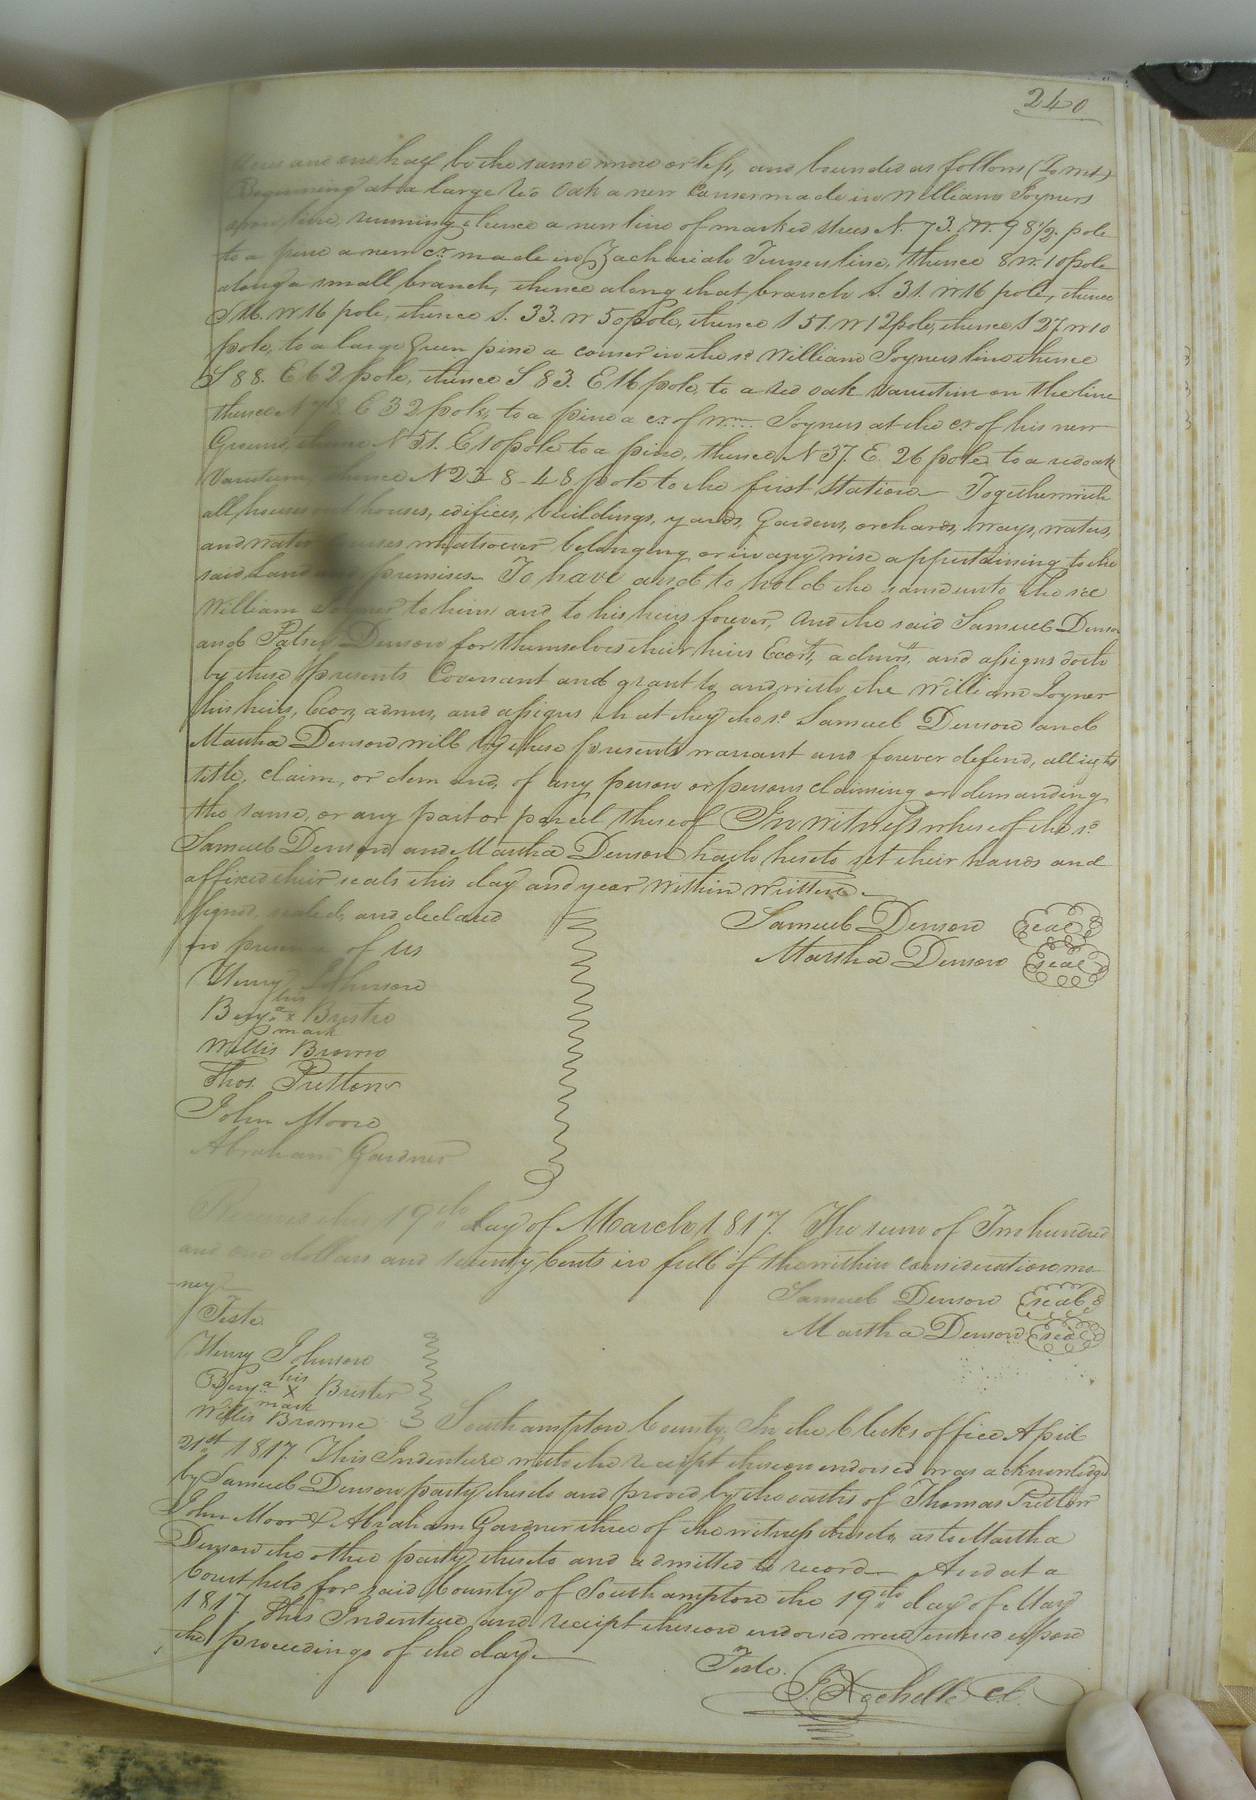 240
and one half be the same more or less, and bounded as follows (To wit)
Beginning at a large Red Oak a new Corner made in William Joyners
line, running thence a new line of marked trees N. 73. W. 98½. pole
to a pine a new cr. made in Zachariah Turners line, thence 8 W. 10 pole
along a small branch, thence along that branch S. 31. W 16 pole, thence
S 16. W 16 pole, thence S. 33. W 50 pole, thence S 51. W 12 pole, thence S 27 W 10
pole, to a large Green pine a corner in the sd. William Joyners line thence
S 88. E 62 pole, thence S 83. E 16 pole, to a red oak on the line
thence N E 32 pole, to a pine a cr. of Wm. Joyners at the cr of his new
Ground, thence N 51. E 10 pole to a pine, thence N 37. E. 26 pole to a red oak
thence N 23 8 - 48 pole to the first Station - Together with
all houses out houses, edifices, buildings, yards, Gardens, orchards, ways, waters,
and water courses whatsoever belonging or in any wise appertaining to the
said Land and premises - To have and to hold the same unto the sd
William Joyner to him and to his heirs forever, And the said Samuel Denson
and Patsey Denson for themselves their heirs Exors, admrs, and assigns doth
by these presents Covenant and grant to, and with the William Joyner
his heirs, Exors, admrs, and assigns that they the sd. Samuel Denson and
Martha Denson will by these presents warrant and forever defend, all right
title, claim, or demand, of any person or persons claiming or demanding
the same, or any part or parcel thereof In witness whereof the sd
Samuel Denson and Martha Denson hath hereto set their hands and
affixed their seals this day and year within written -
Signed, sealed, and declared
in presence of us
Samuel Denson seal
Martha Denson seal
Henry Johnson
his
Benja. x Bristo
mark
Willis Browne
Thos. Pretlow
John Moore
Abraham Gardner
Received this 19th day of March, 1817. The sum of Two hundred
and one dollars and seventy Cents in full of the within consideration mo-
ney
Samuel Denson seal
Teste
Martha Denson seal
Henry Johnson
his
Benja. X Brister
mark
Willis Browne
Southampton County, In the Clerks office April
21st 1817. This Indenture with the receipt thereon endorsed was acknowledged
by Samuel Denson party thereto and proved by the oaths of Thomas Pretlow
John Moor & Abraham Gardner three of the witness thereto, as to Martha
Denson the other party thereto and admitted to record - And at a
Court held for said County of Southampton the 19th day of May
1817 This Indenture, and receipt thereon endorsed were entered upon
the proceedings of the day. -
Teste.
J. Rochelle Cl.